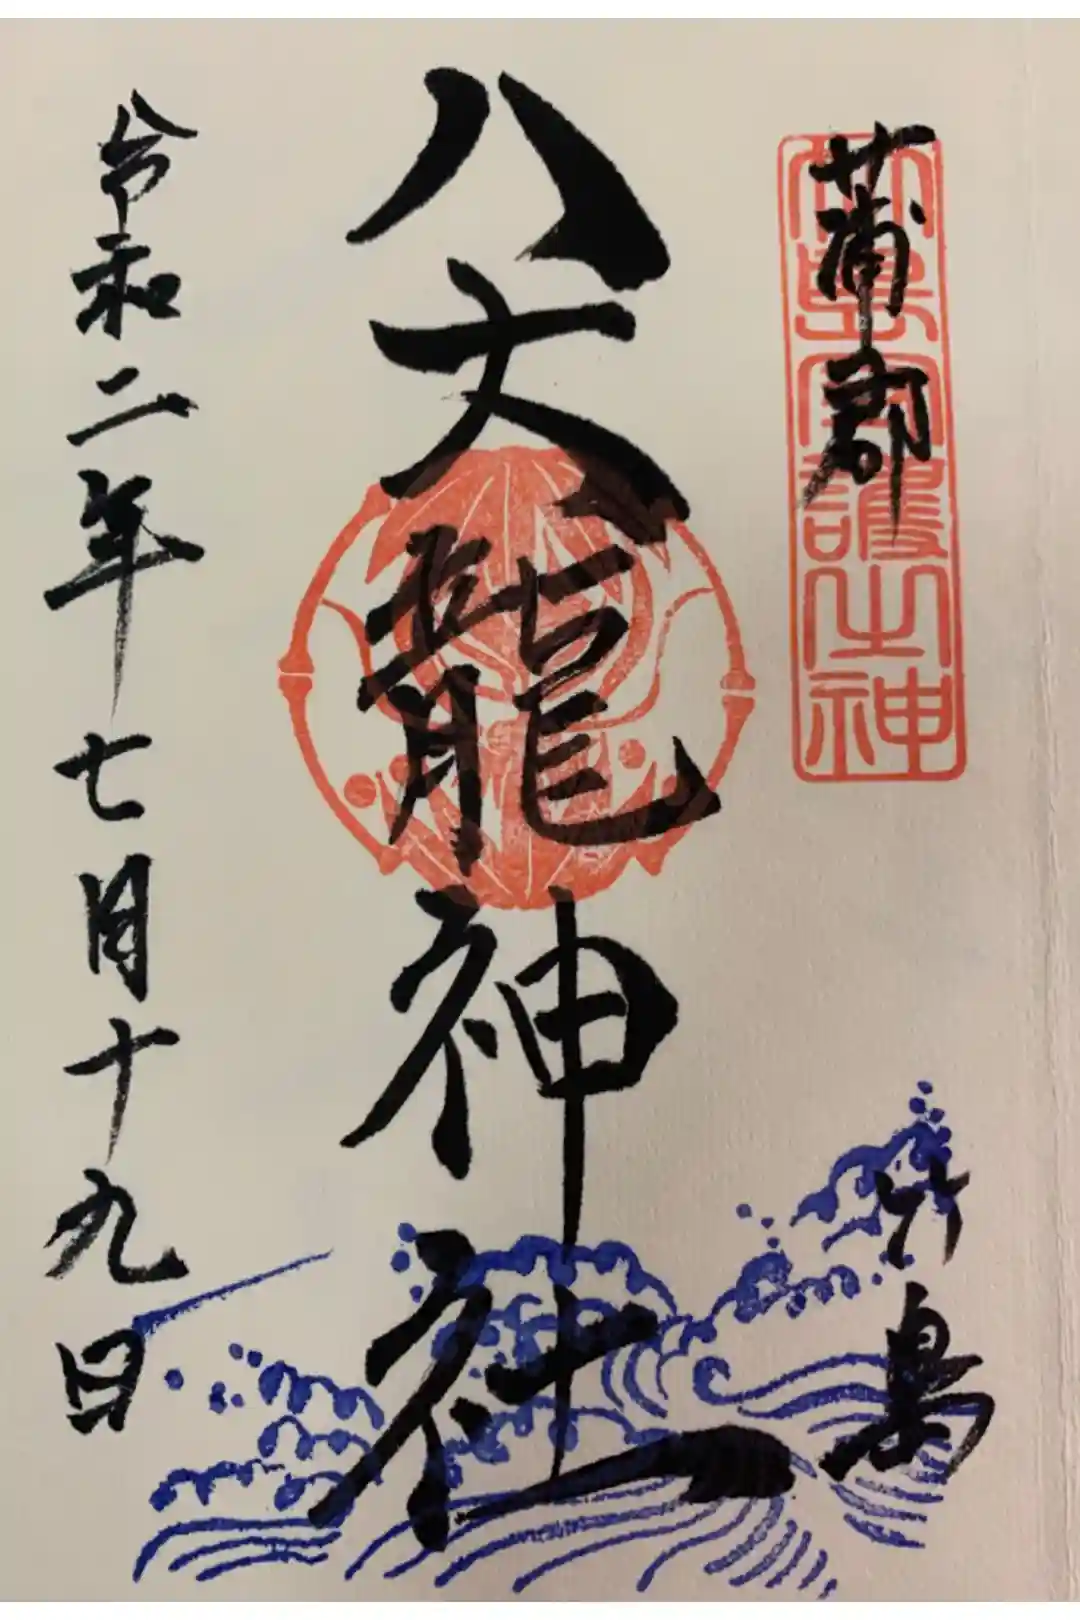 蒲郡
竹島
竹島守護之神
八大龍神社
令和二年七月十九日